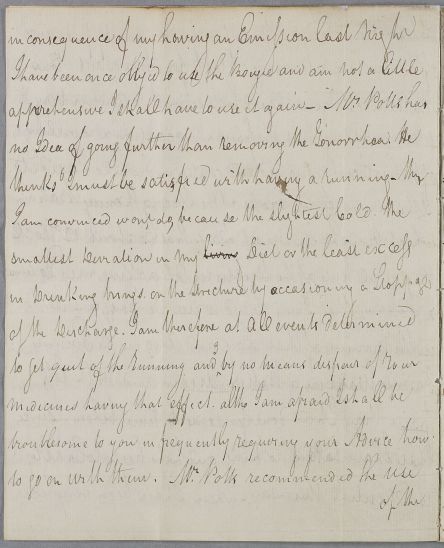 in consequence of my having an Emission last Night
I have been once oblig'd to use the Bougie and am not a little
apprehensive I shall have to use it again – Mr. Potts has
no Idea of going further than removing the Gonorrhea. He
thinks I must be satisfied with having a running – This
I am convinced wont do, because the slightest Cold the
smallest Deviation in my Diet or the least excess
in Drinking brings on the Stricture by occasioning a Stoppage
of the Discharge. I am therefore at all events determined
to get quit of the Running and by no means despair of your
medicines having that effect. altho I am afraid I shall be
troublesome to you in frequently requiring your Advice how
to go on with them. Mr. Potts recommended the use
of the